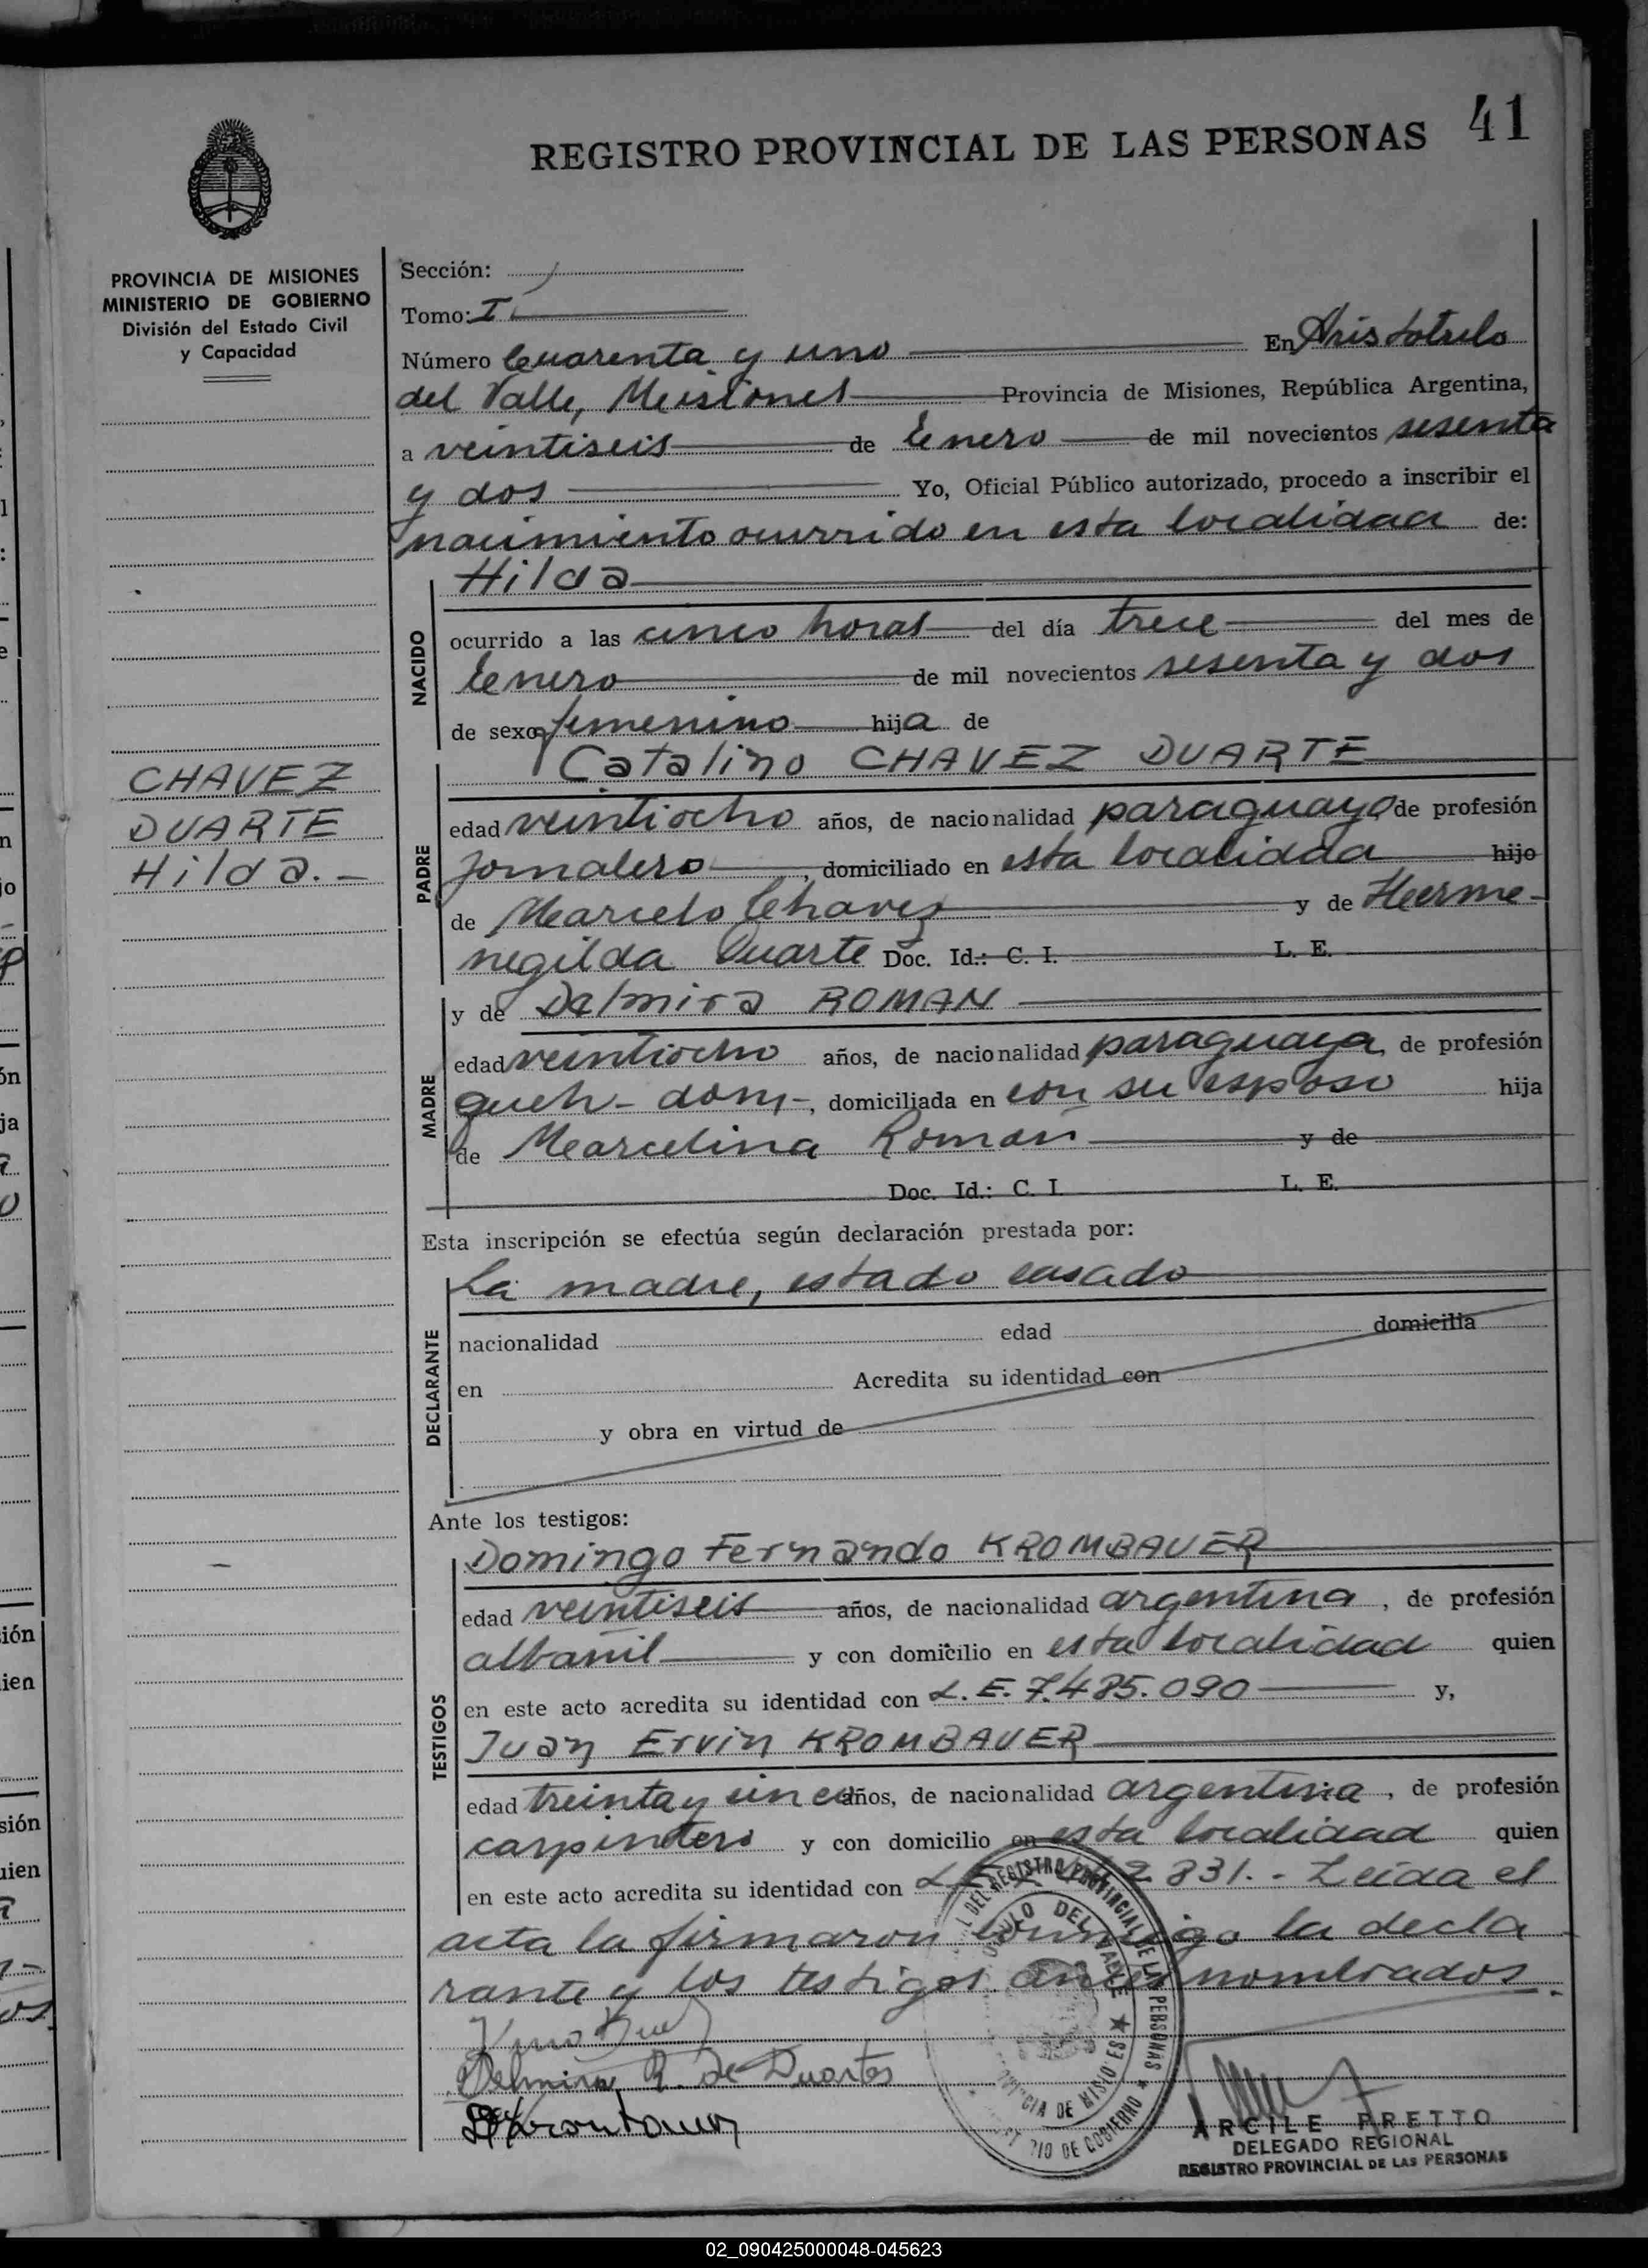 41
REGISTRO PROVINCIAL DE LAS PERSONAS
PROVINCIA DE MISIONES
MINISTERIO DE GOBIERNO
División del Estado Civil
y Capacidad
CHAVEZ
DUARTE
Hilda.-
Sección:
Tomo: I
Número Cuarenta y uno En Aristobulo
del Valle, Misiones Provincia de Misiones, República Argentina,
a veintiseis de Enero de mil novecientos sesenta
y dos Yo, Oficial Público autorizado, procedo a inscribir el
nacimiento ocurrido en esta localidad de:
NACIDO
Hilda
ocurrido a las cinco horas del día trece del mes de
Enero de mil novecientos sesenta y dos
de sexo femenino hija de
PADRE
Catalino CHAVEZ DUARTE
edad veintiocho años, de nacionalidad paraguayo de profesión
jornalero, domiciliado en esta localidad hijo
de Marcelo Chavez y de Herme-
negilda Duarte Doc. Id.: C. I. L. E.
MADRE
y de Delmira ROMAN
edad veintiocho años, de nacionalidad paraguaya, de profesión
queh- dom-, domiciliada en con su esposo hija
de Marcelina Román y de
Doc. Id.: C. I. L. E.
Esta inscripción se efectúa según declaración prestada por:
DECLARANTE
La madre, estado casado
nacionalidad edad domicilia
en Acredita su identidad con
y obra en virtud de
Ante los testigos:
TESTIGOS
Domingo Fernando KROMBAUER
edad veintiseis años, de nacionalidad argentina, de profesión
albañil y con domicilio en esta localidad quien
en este acto acredita su identidad con L.E. 7.485.090 y,
Juan Ervin KROMBAUER
edad treinta y cinco años, de nacionalidad argentina, de profesión
carpintero y con domicilio en esta localidad quien
en este acto acredita su identidad con L.E. 831.- Leída el
acta la firmaron conmigo la decla
rante y los testigos antes nombrados.
Delmira R. de Duartes
DEL REGISTRO PROVINCIAL DE LAS PERSONAS
DEL VALLE
DE GOBIERNO
ARCILE PRETTO
DELEGADO REGIONAL
REGISTRO PROVINCIAL DE LAS PERSONAS
02_090425000048-045623